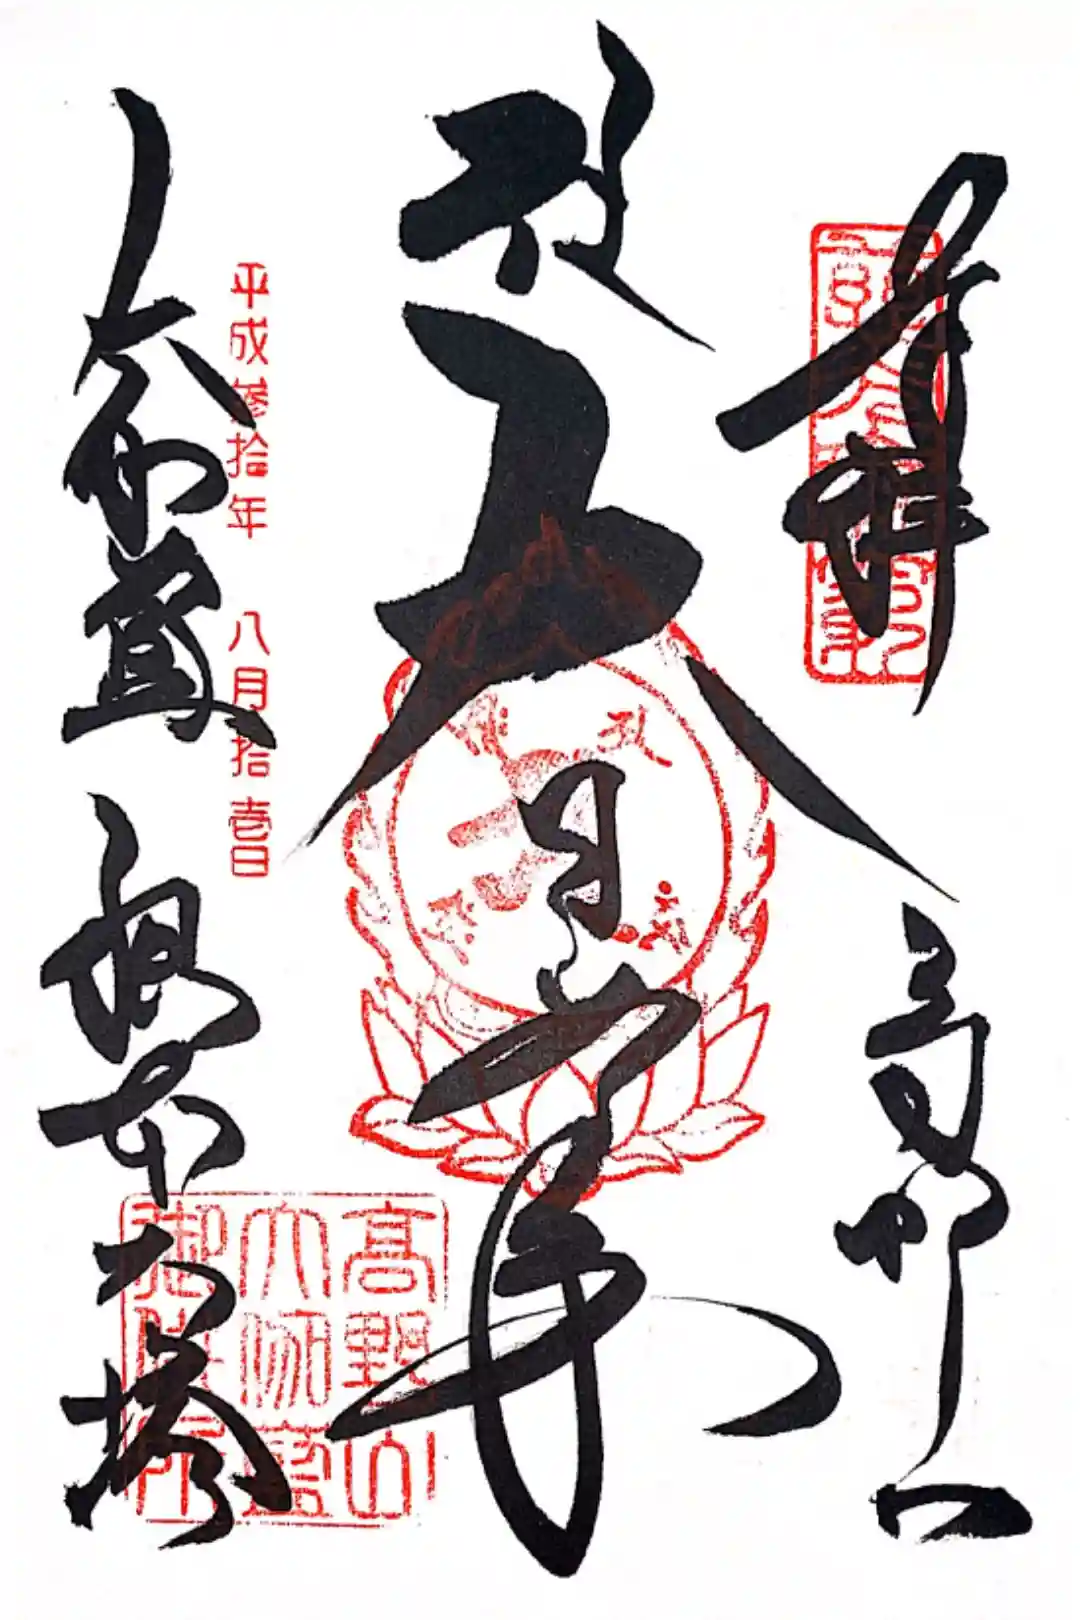 奉拝 高野山
大日如来
平成参拾年 八月拾壱日
大伽藍 根本大塔
高野山
大伽藍
御供所